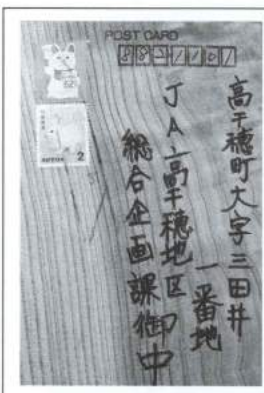 POST CARD
8821101
高千穂町大字三田井
一番地
JA高千穂地区印
総合企画課御中
NIPPON 2